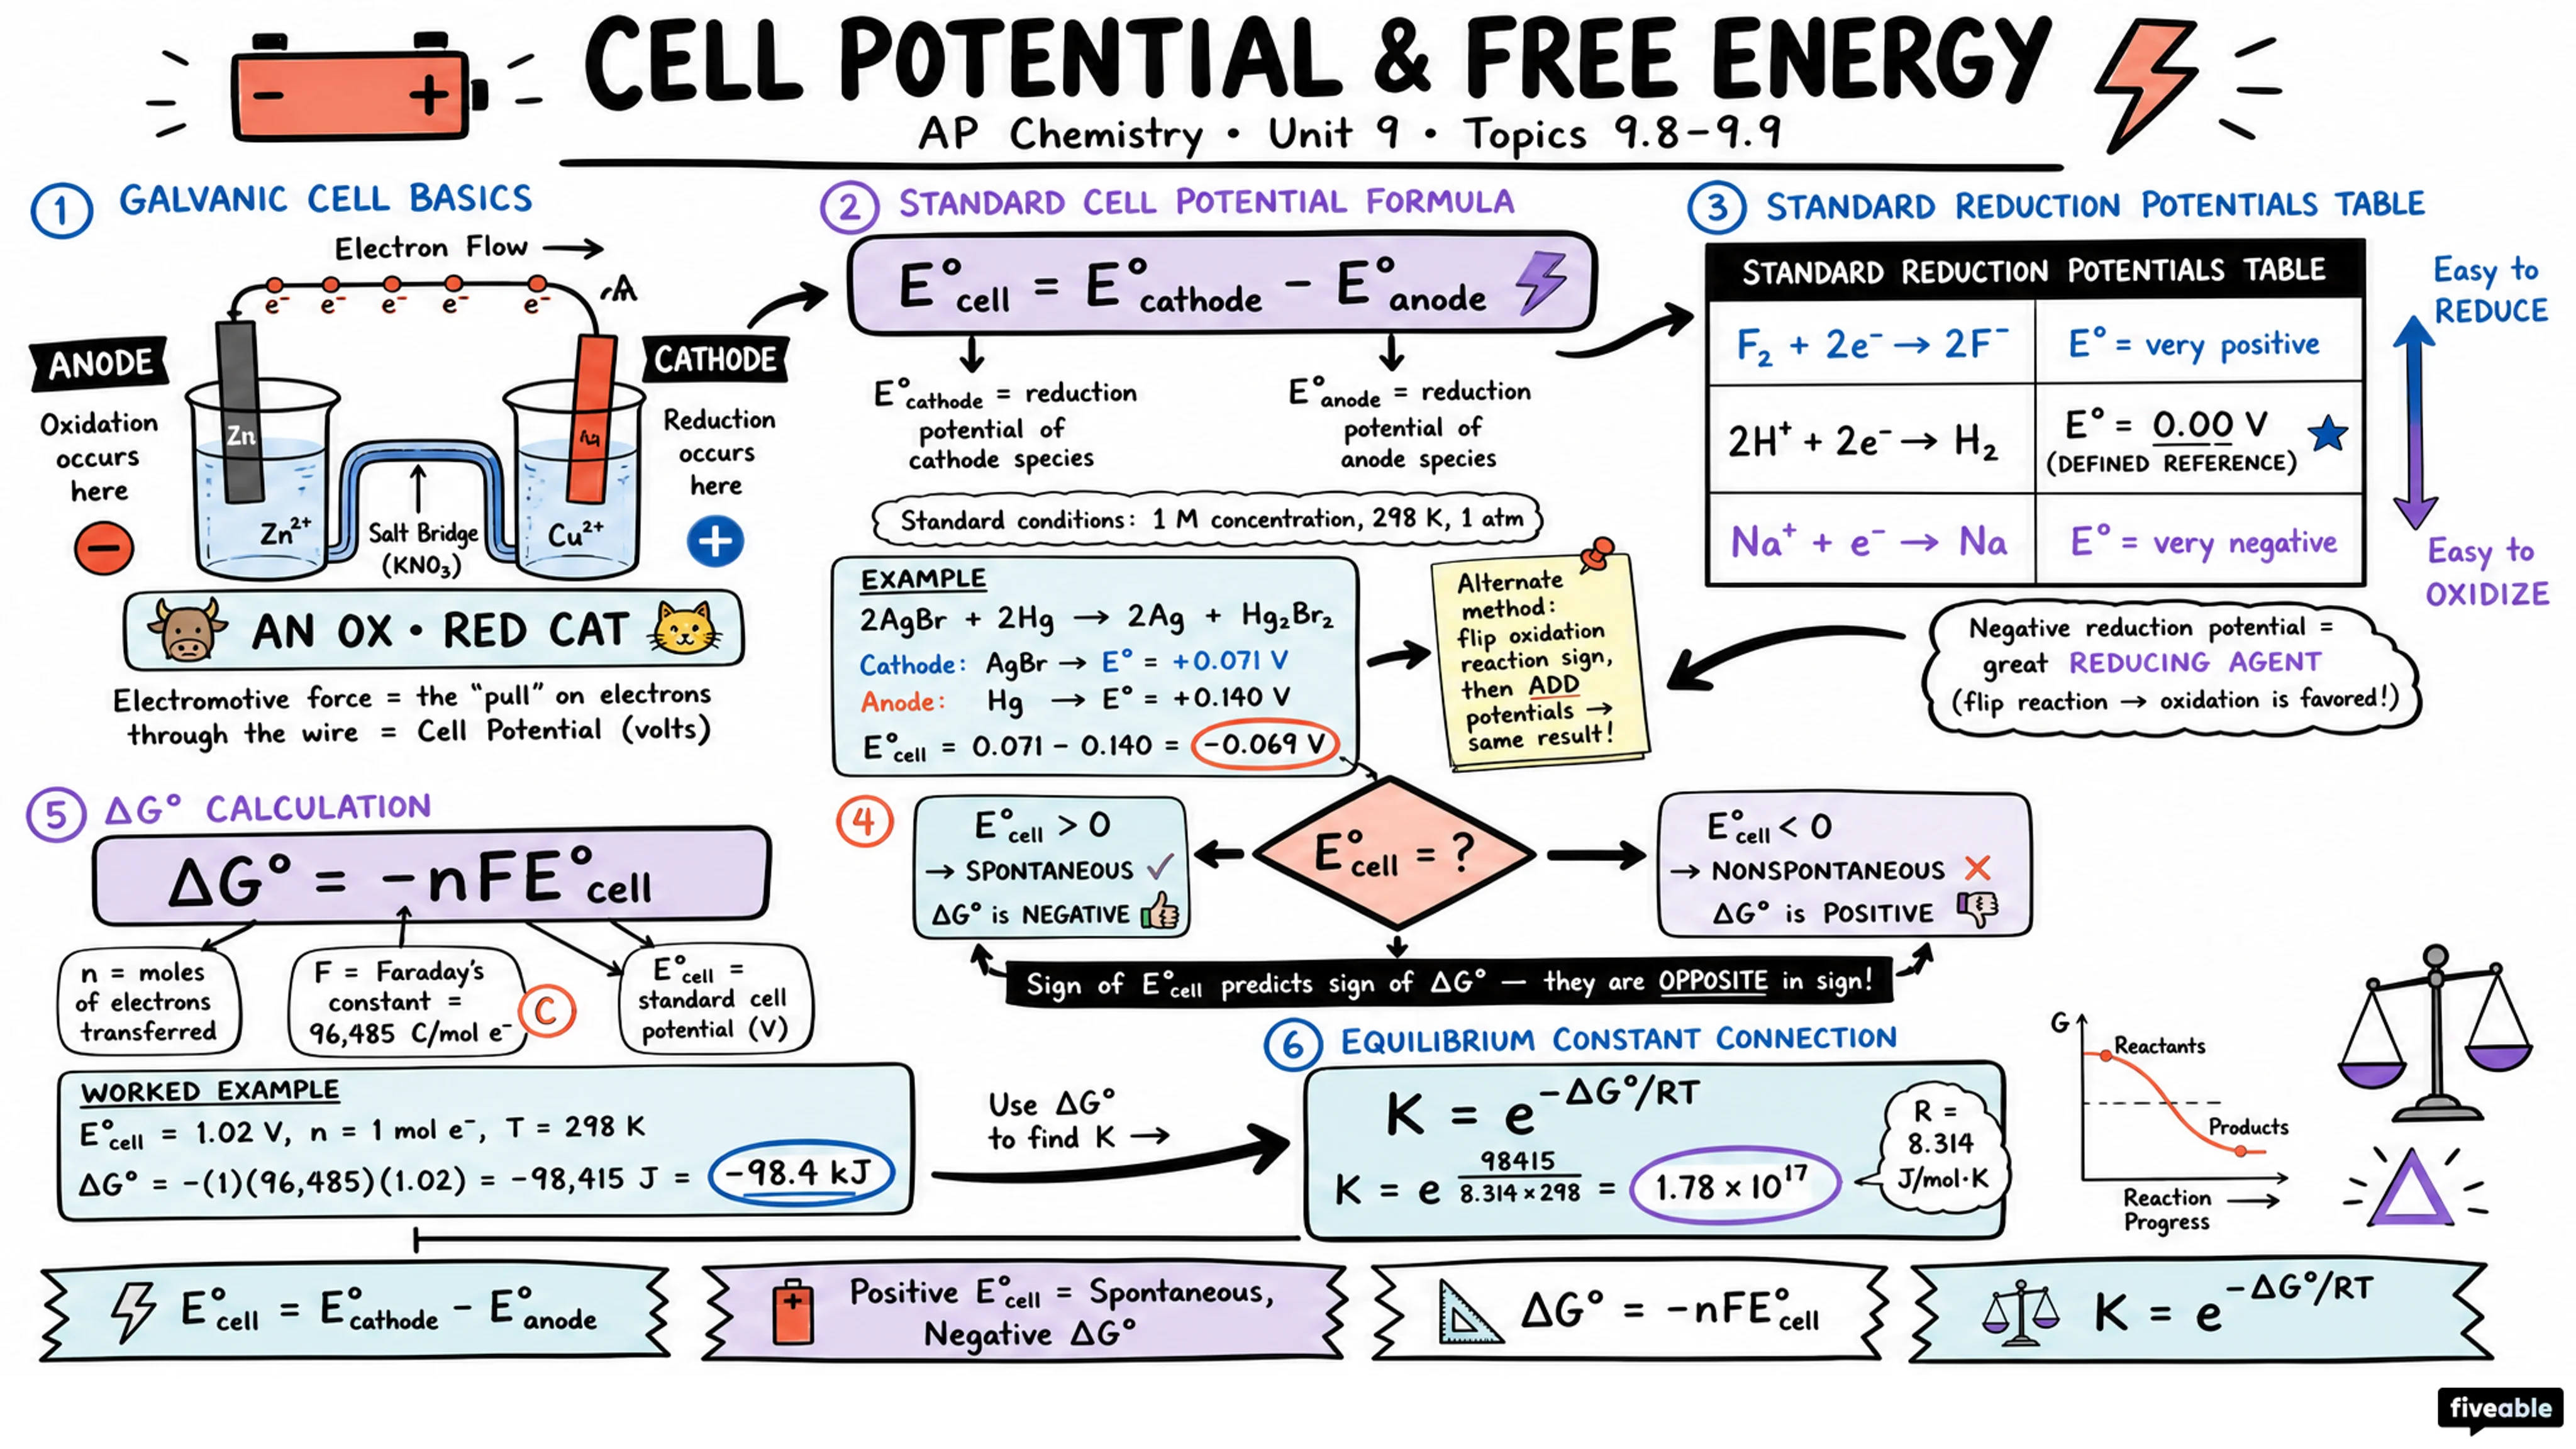 CELL POTENTIAL & FREE ENERGY
AP Chemistry • Unit 9 • Topics 9.8–9.9
1 GALVANIC CELL BASICS
Electron Flow →
e⁻ e⁻ e⁻ e⁻ e⁻
ANODE
Oxidation
occurs
here
−
Zn
Zn²⁺
Salt Bridge
(KNO₃)
Cu²⁺
CATHODE
Reduction
occurs
here
+
AN OX • RED CAT
Electromotive force = the "pull" on electrons
through the wire = Cell Potential (volts)
2 STANDARD CELL POTENTIAL FORMULA
E°cell = E°cathode − E°anode
E°cathode = reduction
potential of
cathode species
E°anode = reduction
potential of
anode species
Standard conditions: 1 M concentration, 298 K, 1 atm
EXAMPLE
2AgBr + 2Hg → 2Ag + Hg₂Br₂
Cathode: AgBr → E° = +0.071 V
Anode: Hg → E° = +0.140 V
E°cell = 0.071 − 0.140 = −0.069 V
Alternate
method:
flip oxidation
reaction sign,
then ADD
potentials →
same result!
3 STANDARD REDUCTION POTENTIALS TABLE
STANDARD REDUCTION POTENTIALS TABLE
F₂ + 2e⁻ → 2F⁻ E° = very positive
2H⁺ + 2e⁻ → H₂ E° = 0.00 V
(DEFINED REFERENCE)
Na⁺ + e⁻ → Na E° = very negative
Easy to
REDUCE
Easy to
OXIDIZE
Negative reduction potential =
great REDUCING AGENT
(flip reaction → oxidation is favored!)
4
E°cell > 0
→ SPONTANEOUS ✓
ΔG° is NEGATIVE
E°cell = ?
E°cell < 0
→ NONSPONTANEOUS ✗
ΔG° is POSITIVE
Sign of E°cell predicts sign of ΔG° — they are OPPOSITE in sign!
5 ΔG° CALCULATION
ΔG° = −nFE°cell
n = moles
of electrons
transferred
F = Faraday's
constant =
96,485 C/mol e⁻
C
E°cell =
standard cell
potential (V)
WORKED EXAMPLE
E°cell = 1.02 V, n = 1 mol e⁻, T = 298 K
ΔG° = −(1)(96,485)(1.02) = −98,415 J = −98.4 kJ
Use ΔG°
to find K →
6 EQUILIBRIUM CONSTANT CONNECTION
K = e^−ΔG°/RT
K = e^98415/8.314×298 = 1.78 × 10¹⁷
R =
8.314
J/mol·K
G
Reactants
Products
Reaction →
Progress
E°cell = E°cathode − E°anode
Positive E°cell = Spontaneous,
Negative ΔG°
ΔG° = −nFE°cell
K = e^−ΔG°/RT
fiveable